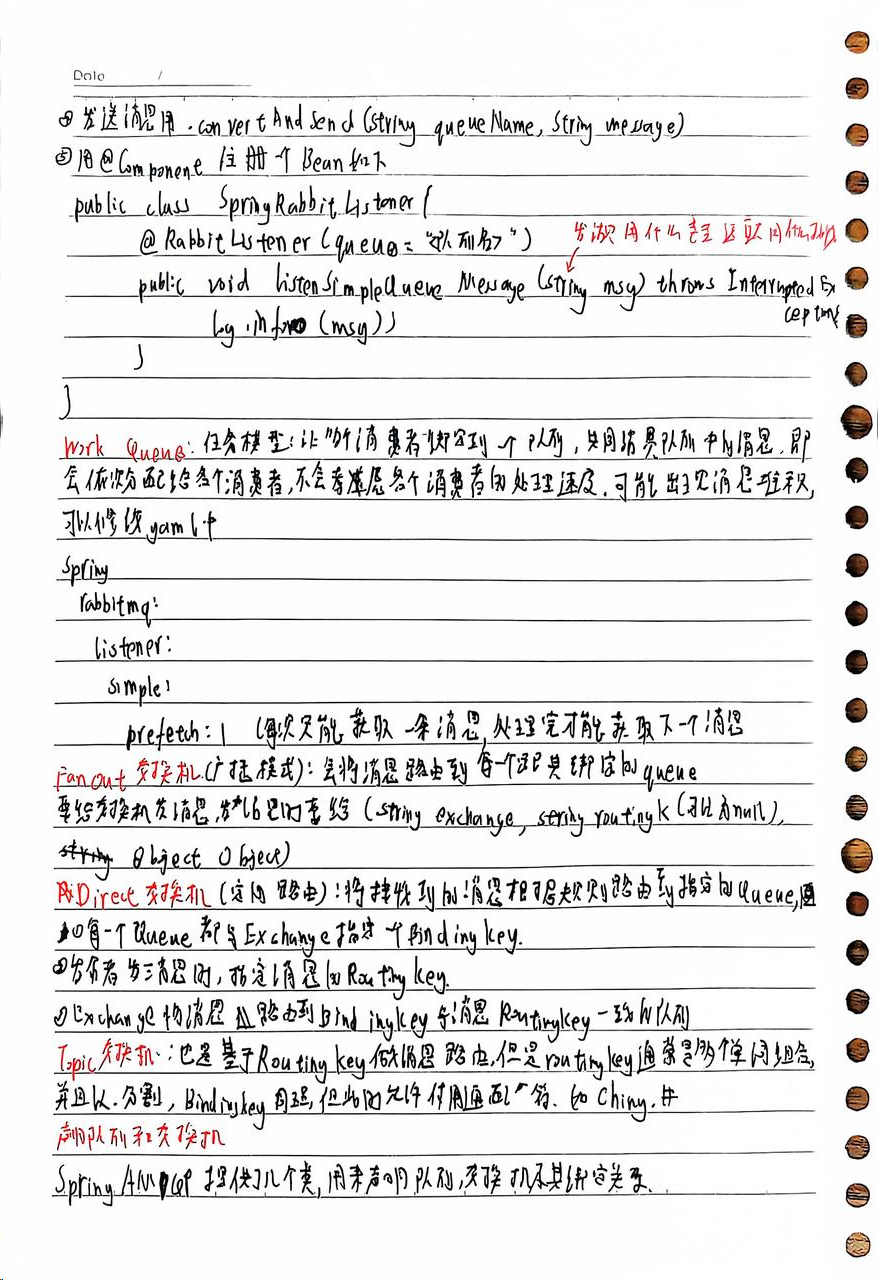 Date /
④ 发送消息用 .convertAndSend (String queueName, String message)
⑤ 用@Component 注册个 Bean如下
public class SpringRabbitListener {
@RabbitListener (queue = "<队列名>")
发消息用什么类型 接取用什么
public void listenSimpleQueue Message (String msg) throws Interrupted Ex
ception{
log.info (msg);
}
}
Work Queue: 任务模型: 让多个消费者绑定到一个队列, 共同消费队列中的消息. 即
会依次分配给各个消费者, 不会考虑各个消费者的处理速度. 可能出现消息堆积,
可以修改yaml中
Spring
rabbitmq:
listener:
simple:
prefetch: 1 (每次只能获取一条消息, 处理完才能获取下一个消息
Fanout 交换机(广播模式): 会将消息路由到每一个跟其绑定的queue
要给交换机发消息, 发消息时要给 (string exchange, string routingk (可以为null),
Object Object)
Direct 交换机 (定向路由): 将接收到的消息根据规则路由到指定的Queue,
①每一个Queue 都与Exchange指定个BindingKey.
②发布者发送消息时, 指定消息的Routing key.
③Exchange将消息路由到BindingKey与消息 RoutingKey一致的队列
Topic交换机: 也是基于Routing key做消息路由, 但是routing key通常是多个单词组合,
并且以.分割, Bindingkey同理, 但此时允许使用通配符. 如 China.#
声明队列和交换机
Spring AMQP 提供了几个类, 用来声明队列, 交换机及其绑定关系.